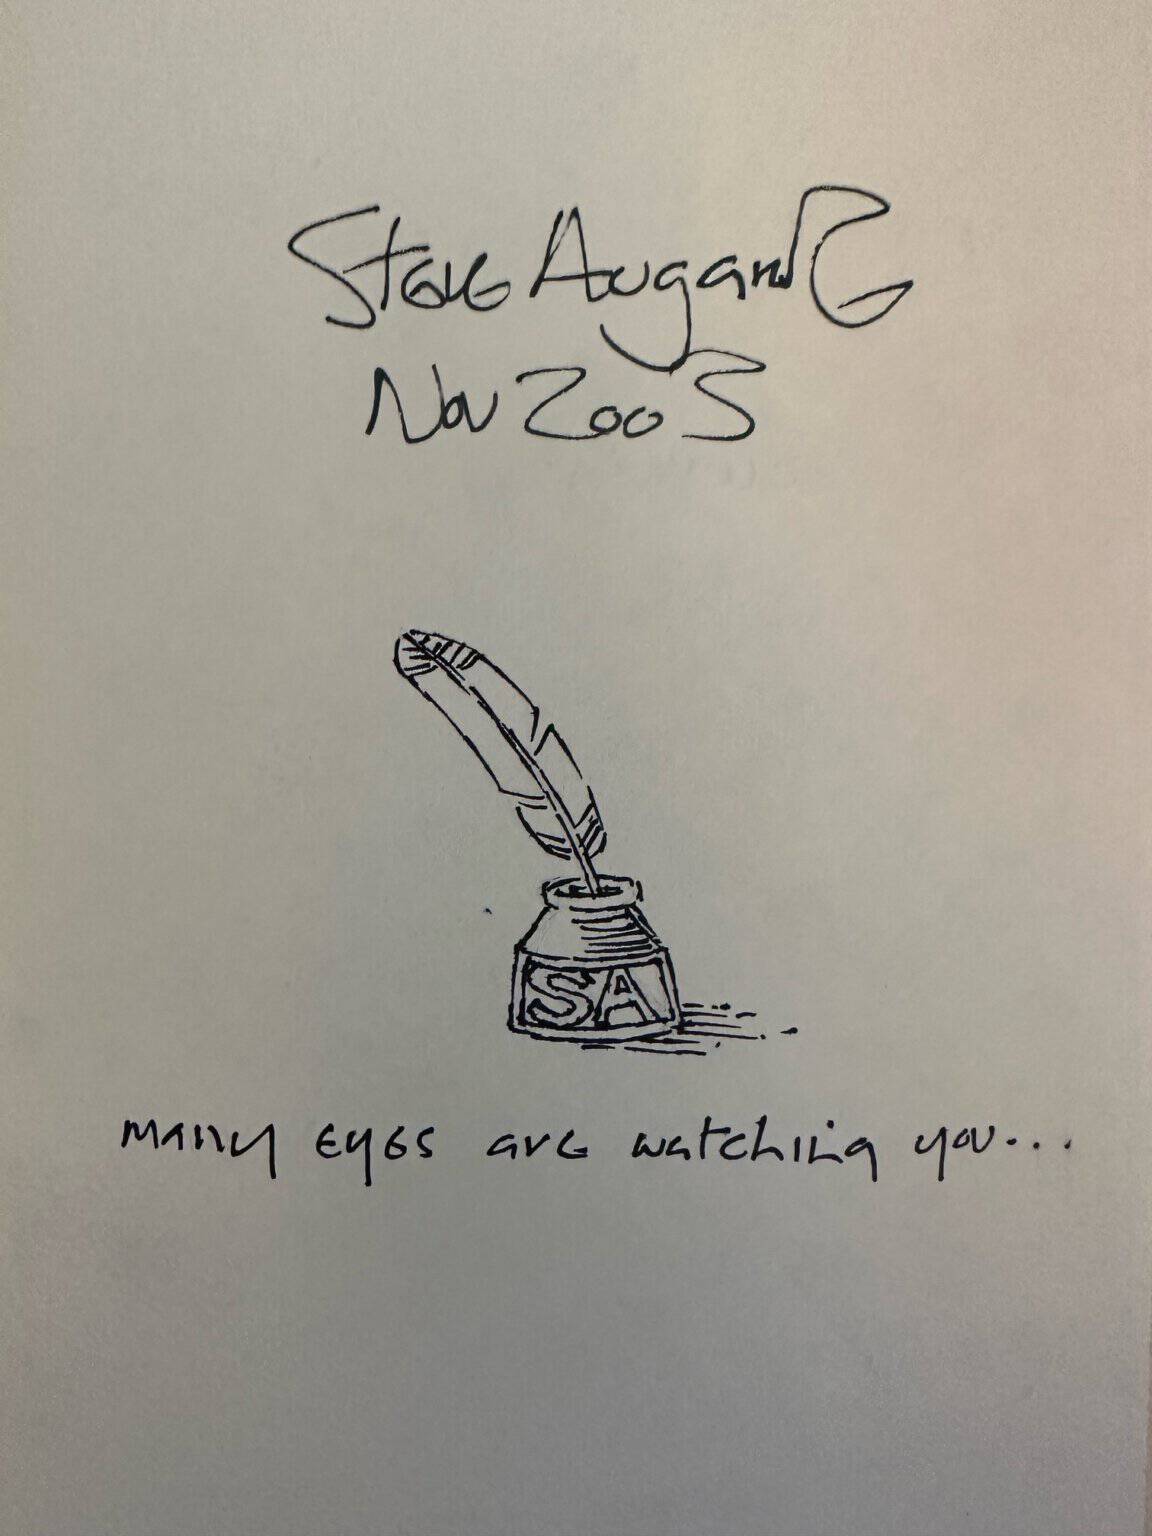 Steve Augarde
Nov 2003
SA
many eyes are watching you...